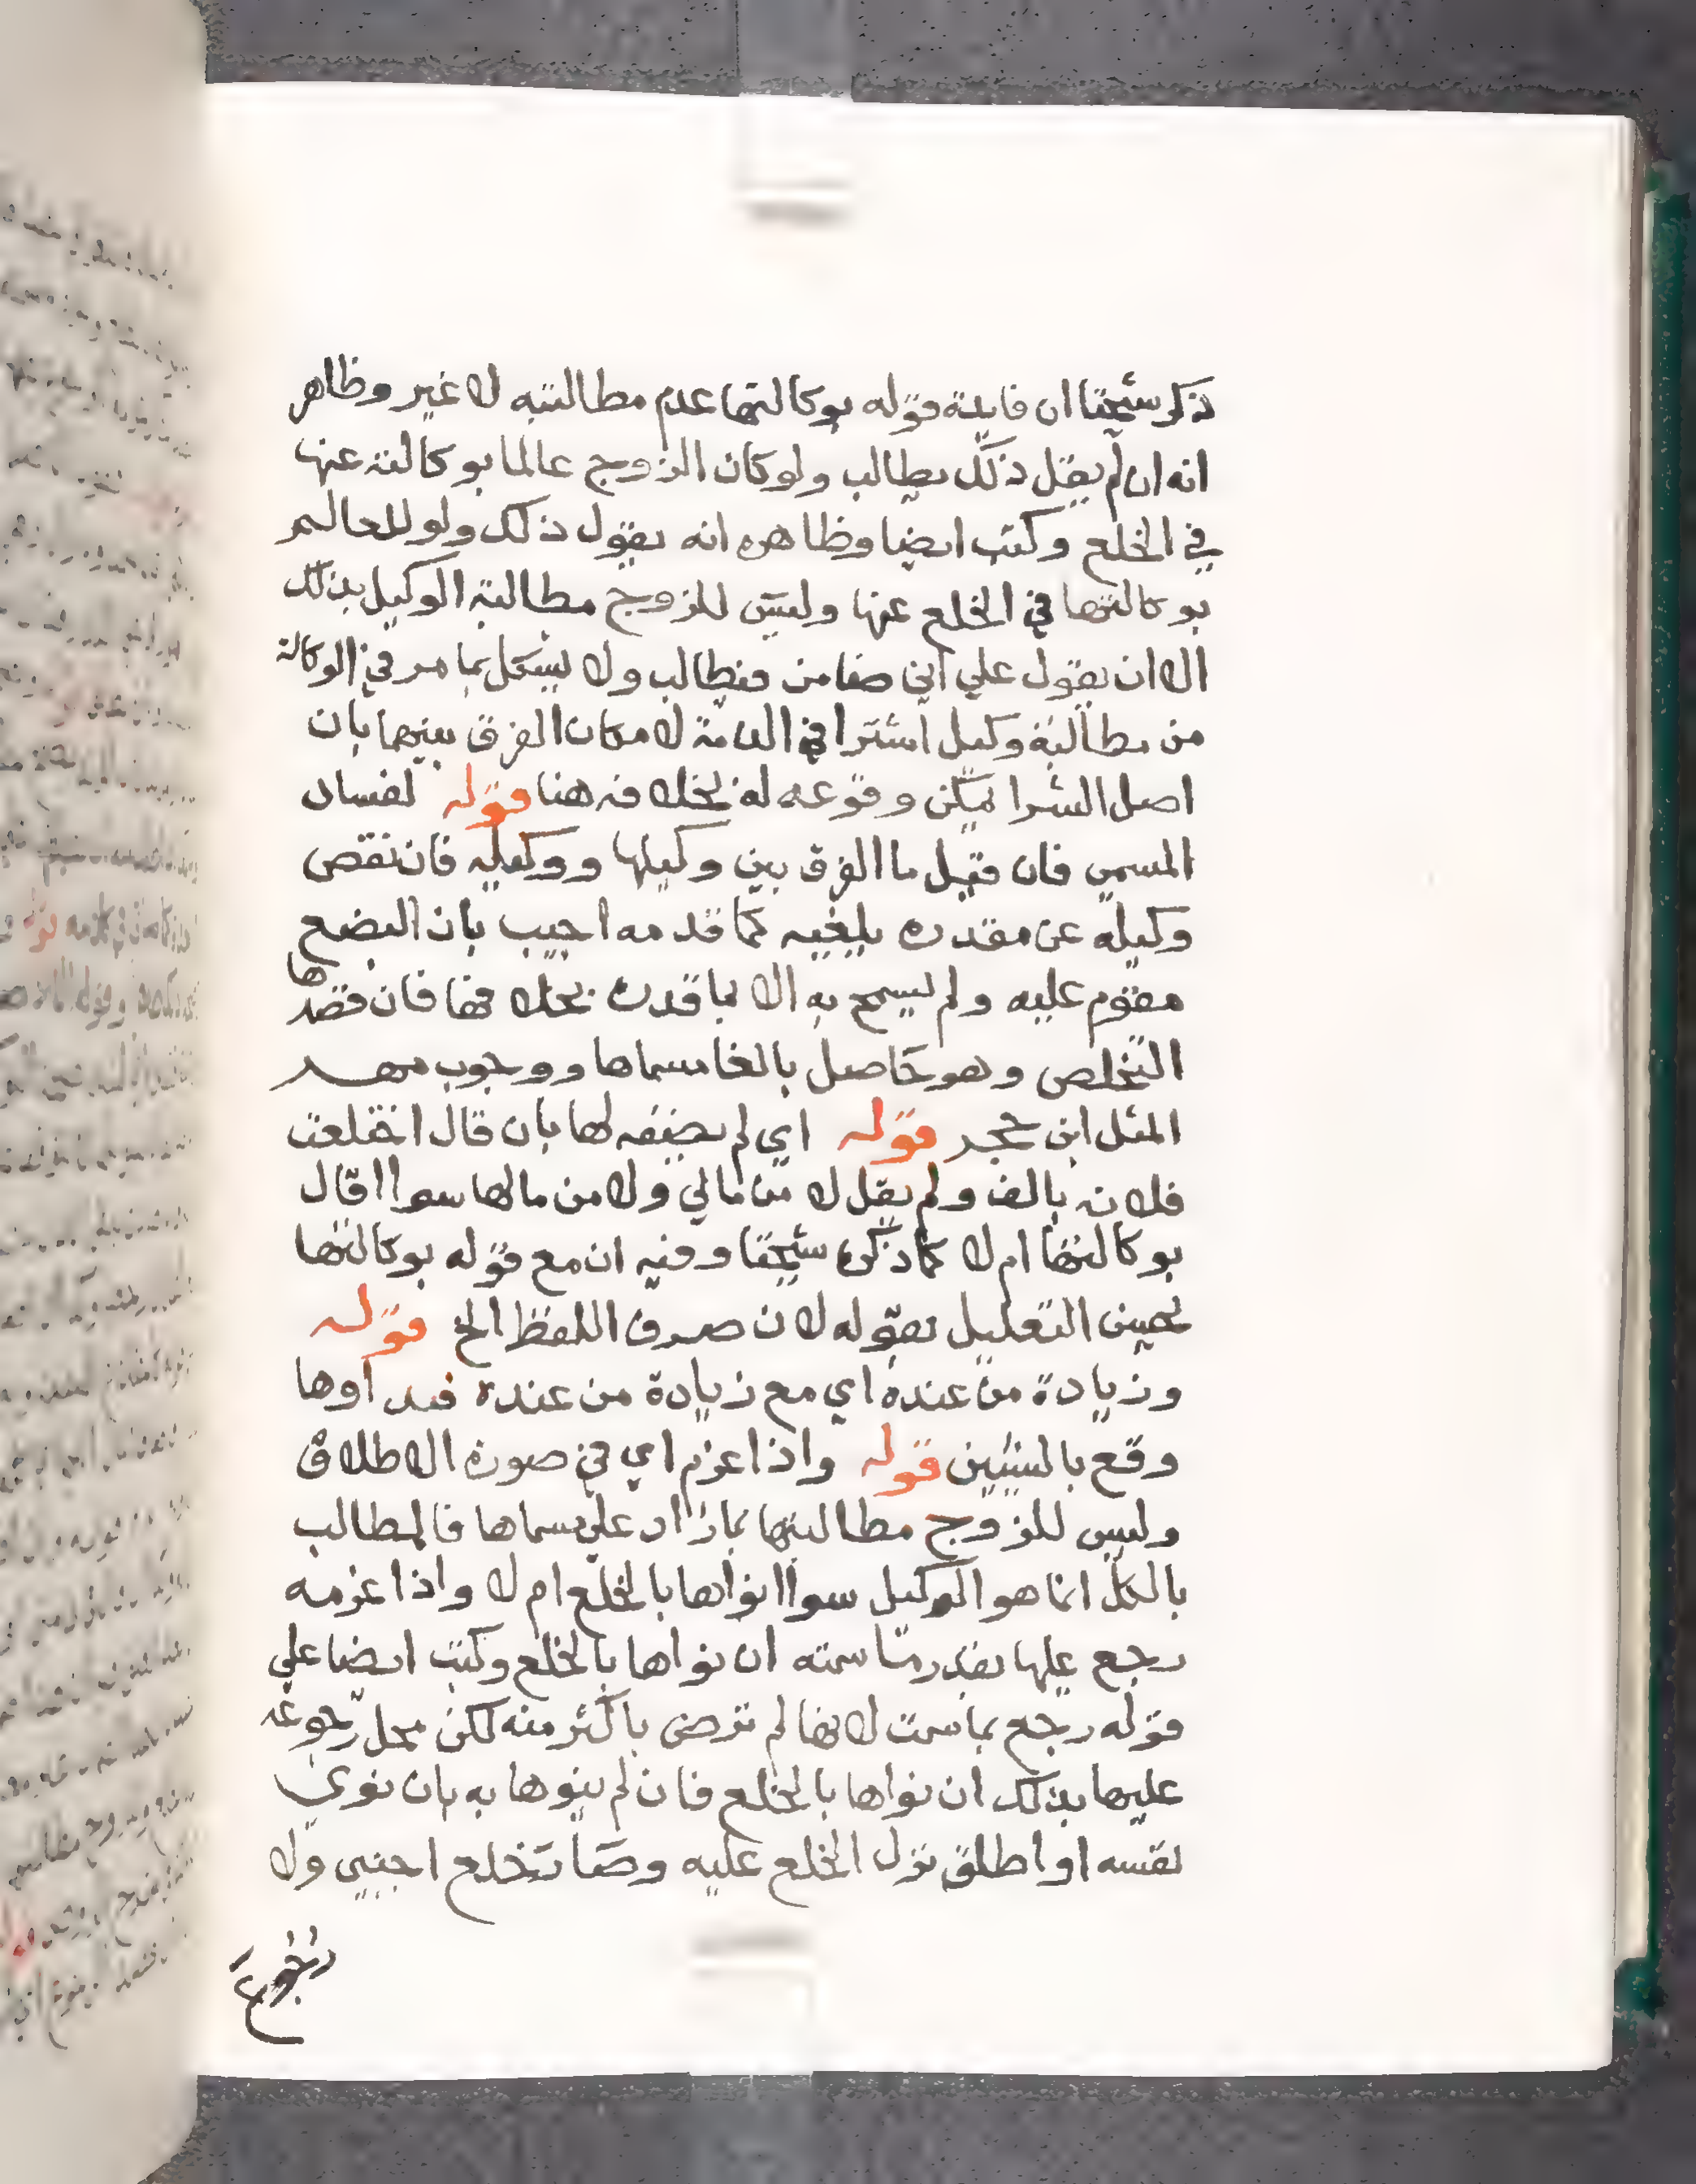 ذكر شيخنا ان فايدة قوله بوكالتها عدم مطالبته لا غير وظاهر
انه ان لم يقل ذلك يطالب ولو كان الزوج عالما بوكالته عنها
في الخلع وكتب ايضا وظاهره انه يقول ذلك ولو للعالم
بوكالتها في الخلع عنها وليس للزوج مطالبة الوكيل بذلك
الا ان يقول علي اني ضامن فيطالب ولا يشكل بما مر في الوكالة
من مطالبة وكيل اشترا في الذمة لامكان الفرق بينهما بان
اصل الشرا يمكن وقوعه له بخلافه هنا قوله لفساد
المسمي فان قيل ما الفرق بين وكيلها ووكيله فان نقص
وكيله عن مقدره يلغيه كما قدمه اجيب بان البضع
مقوم عليه ولم يسمح به الا بما قدره بخلافها فان قصدها
التخلص وهو حاصل بالغا مسماها ووجوب مهر
المثل ابن حجر قوله اي لم يضفه لها بان قال اختلعت
فلانه بالف ولم يقل لا من مالي ولا من مالها سوا اقال
بوكالتها ام لا كما ذكره شيخنا وفيه ان مع قوله بوكالتها
يحسن التعليل بقوله لان صرف اللفظ الخ قوله
وزيادة من عنده اي مع زيادة من عنده فيد اوها
وقع بالسنين قوله واذا عزم اي في صورة الاطلاق
وليس للزوج مطالبتها بما زاد علي مسماها فالمطالب
بالكل انما هو الوكيل سوا انواها بالخلع ام لا واذا غرمه
رجع عليها بقدر ما سمته ان نواها بالخلع وكتب ايضا علي
قوله رجع بما سمت لانها لم ترض باكثر منه لكن محل رجوعه
عليها بذلك ان نواها بالخلع فان لم ينوها به بان نوي
نفسه او اطلق نزل الخلع عليه وصار خلع اجنبي ولا
رجوع